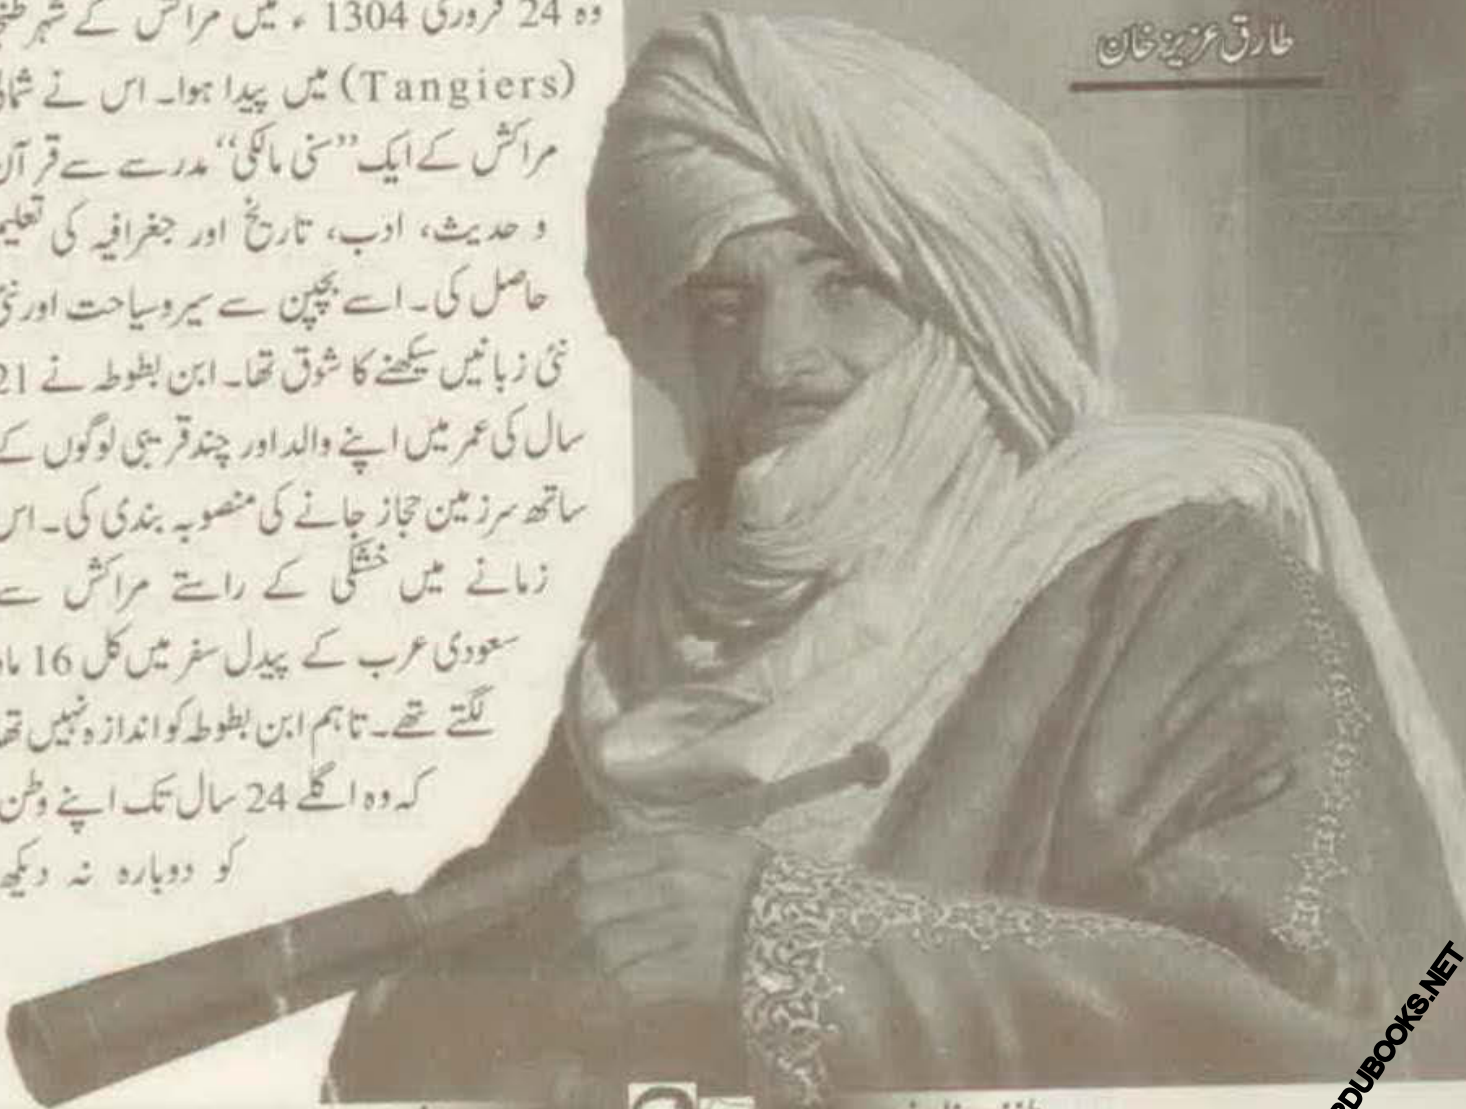 طارق عزیز خان
وہ 24 فروری 1304 ء میں مراکش کے شہر
(Tangiers) میں پیدا ہوا۔ اس نے
مراکش کے ایک ’’سنی مالکی‘‘ مدرسے سے قرآن
و حدیث، ادب، تاریخ اور جغرافیہ کی تعلیم
حاصل کی۔ اسے بچپن سے سیر و سیاحت اور نئی
نئی زبانیں سیکھنے کا شوق تھا۔ ابن بطوطہ نے 21
سال کی عمر میں اپنے والد اور چند قریبی لوگوں کے
ساتھ سرزمین حجاز جانے کی منصوبہ بندی کی۔ اس
زمانے میں خشکی کے راستے مراکش سے
سعودی عرب کے پیدل سفر میں کل 16 ماہ
لگتے تھے۔ تاہم ابن بطوطہ کو اندازہ نہیں تھا
کہ وہ اگلے 24 سال تک اپنے وطن
کو دوبارہ نہ دیکھ
RDUBOOKS.NET